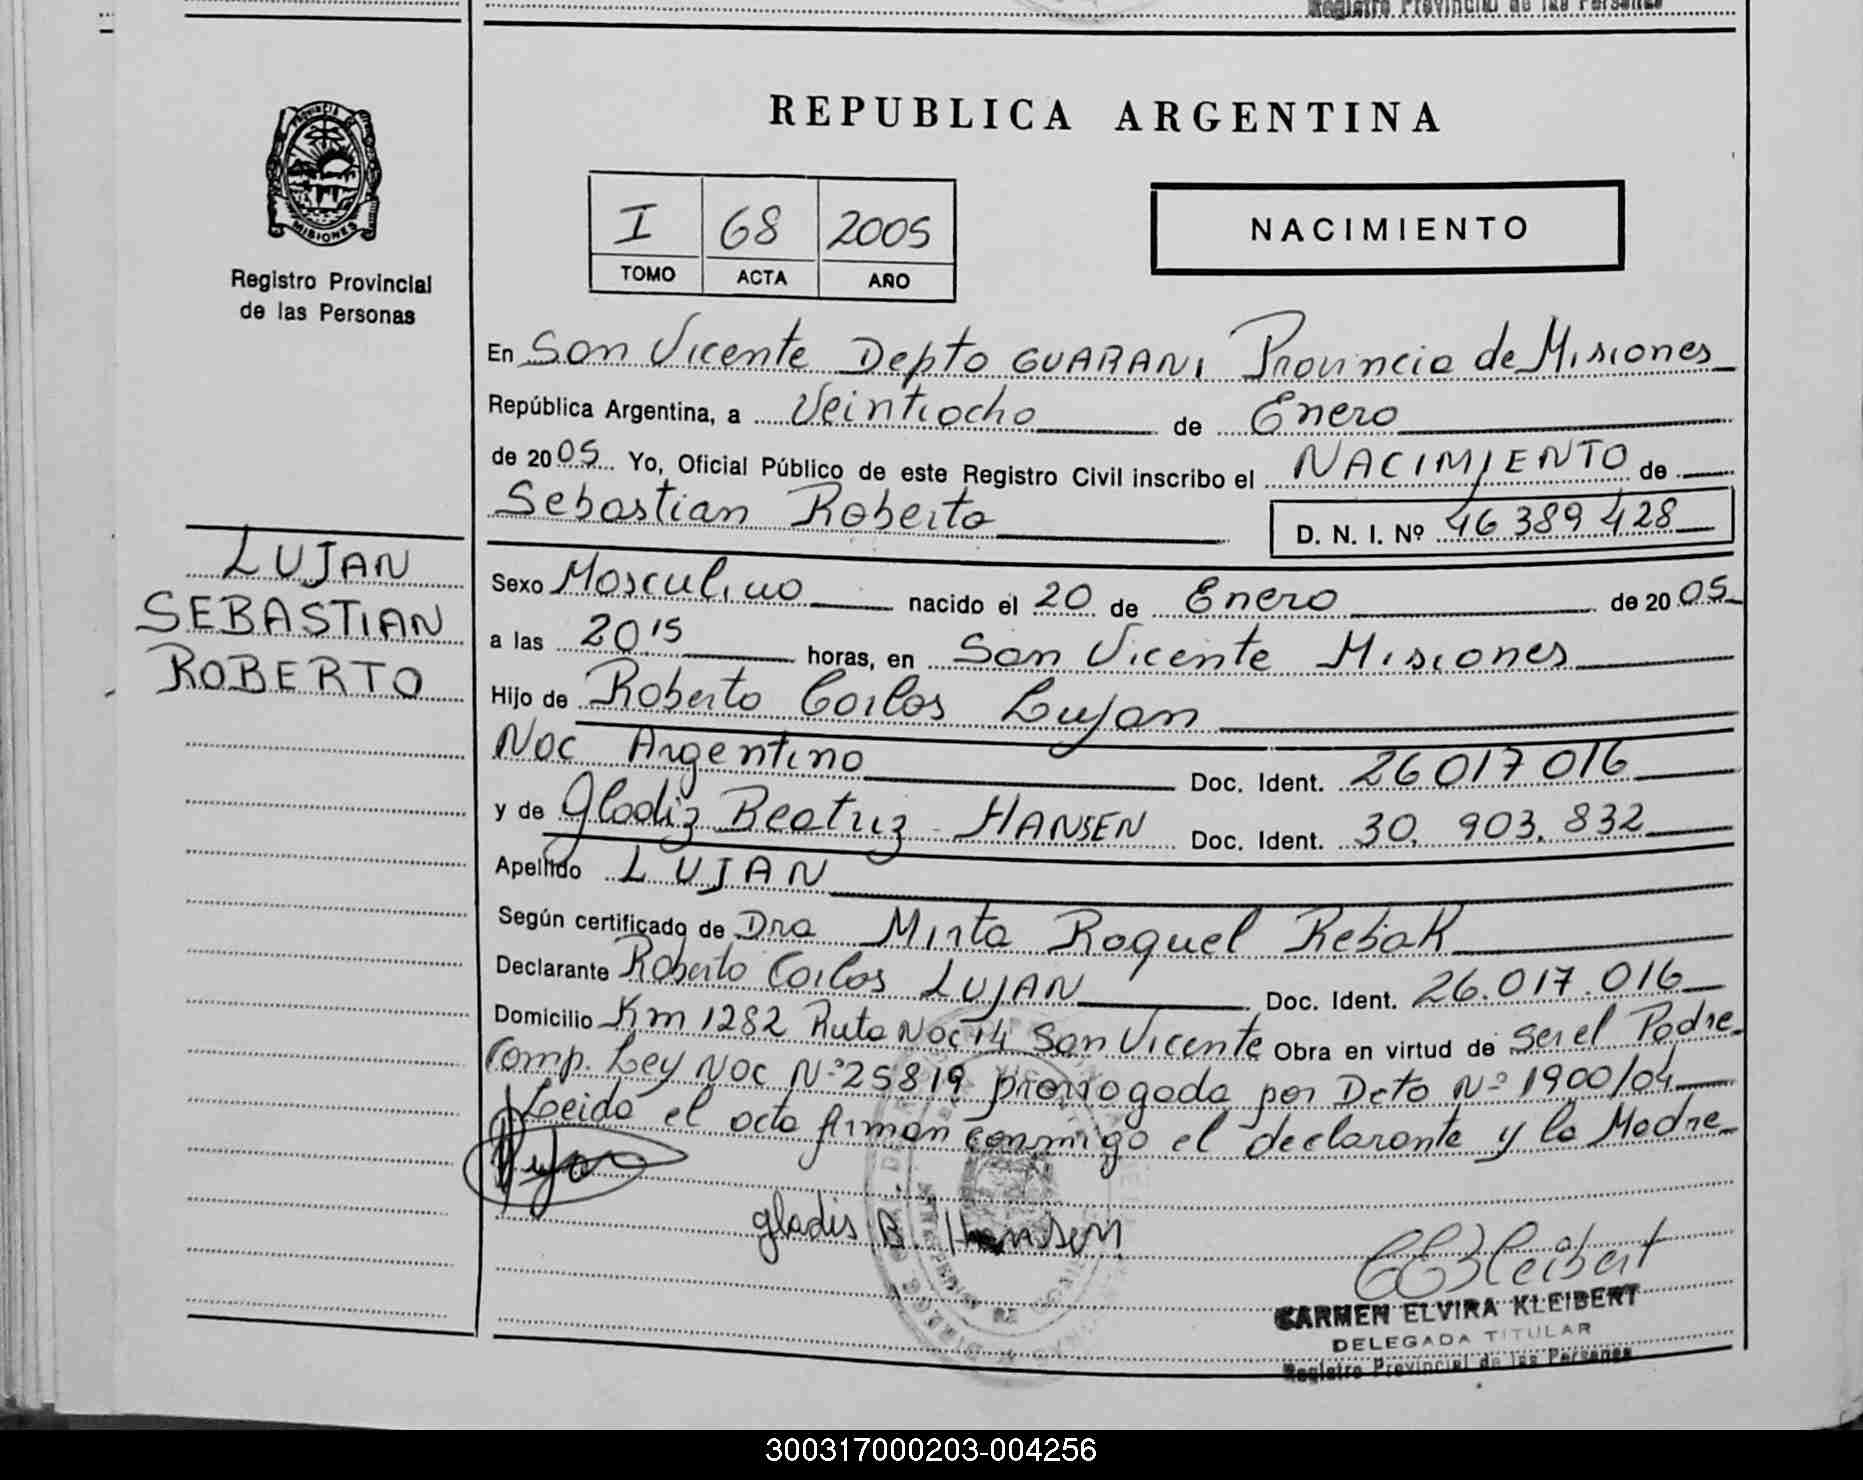 Registro Provincial de las Personas
REPUBLICA ARGENTINA
PROVINCIA DE
MISIONES
Registro Provincial
de las Personas
I 68 2005
TOMO ACTA AÑO
NACIMIENTO
En San Vicente Depto GUARANI Provincia de Misiones
República Argentina, a Veintiocho de Enero
de 2005 Yo, Oficial Público de este Registro Civil inscribo el NACIMIENTO de
Sebastian Roberto
D. N. I. Nº 46 389 428
LUJAN
SEBASTIAN
ROBERTO
Sexo Masculino nacido el 20 de Enero de 2005
a las 20 15 horas, en San Vicente Misiones
Hijo de Roberto Carlos Lujan
Nac Argentino Doc. Ident. 26 017 016
y de Gladiz Beatriz HANSEN Doc. Ident. 30. 903. 832
Apellido LUJAN
Según certificado de Dra Mirta Raquel Rebak
Declarante Roberto Carlos LUJAN Doc. Ident. 26.017.016
Domicilio Km 1282 Ruta Nac 14 San Vicente Obra en virtud de ser el Padre
Comp. Ley Nac Nº 25819 prorrogada por Dcto Nº 1900/04
Leida el acta firman conmigo el declarante y la Madre
gladis B Hansen
CEKleibert
CARMEN ELVIRA KLEIBERT
DELEGADA TITULAR
Registro Provincial de las Personas
300317000203-004256